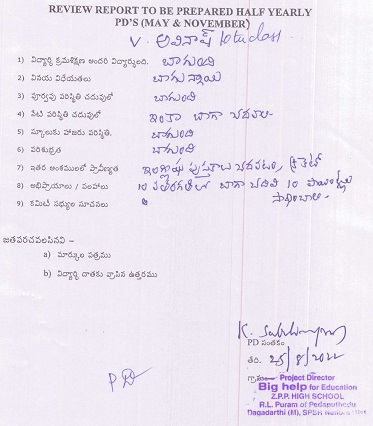 REVIEW REPORT TO BE PREPARED HALF YEARLY
PD'S (MAY & NOVEMBER)
V. అవినాష్ 10th class
1) విద్యార్థి క్రమశిక్షణ అందరి విద్యార్థుంది. బాగుంది
2) వినయ విధేయతలు బాగున్నాయి
3) పూర్వపు పరిస్థితి చదువులో బాగుంది
4) నేటి పరిస్థితి చదువులో ఇంకా బాగా చదవాలి
5) స్కూలుకు హాజరు పరిస్థితి. బాగుంది
6) పరిశుభ్రత బాగుంది
7) ఇతర అంశములలో ప్రావీణ్యత ఇంగ్లీషు పుస్తకాలు చదవటం, క్రికెట్
8) అభిప్రాయాలు / సలహాలు 10 వతరగతిలో బాగా చదివి 10 పాయింట్లు
సాధించాలి
9) కమిటీ సభ్యుల సూచనలు
జతపరచవలసినవి -
a) మార్కుల పత్రము
b) విద్యార్థి దాతకు వ్రాసిన ఉత్తరము
PD సంతకం
తేది. 25/8/2022
గ్రామం
PD
Project Director
Big help for Education
Z.P.P. HIGH SCHOOL
R.L. Puram of Pedaputhedu
Dagadarthi (M), SPSR Nellore